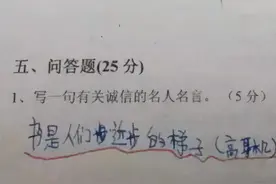 五、问答题(25分)
1、写一句有关诚信的名人名言。（5分）
书是人们进步的梯子（高